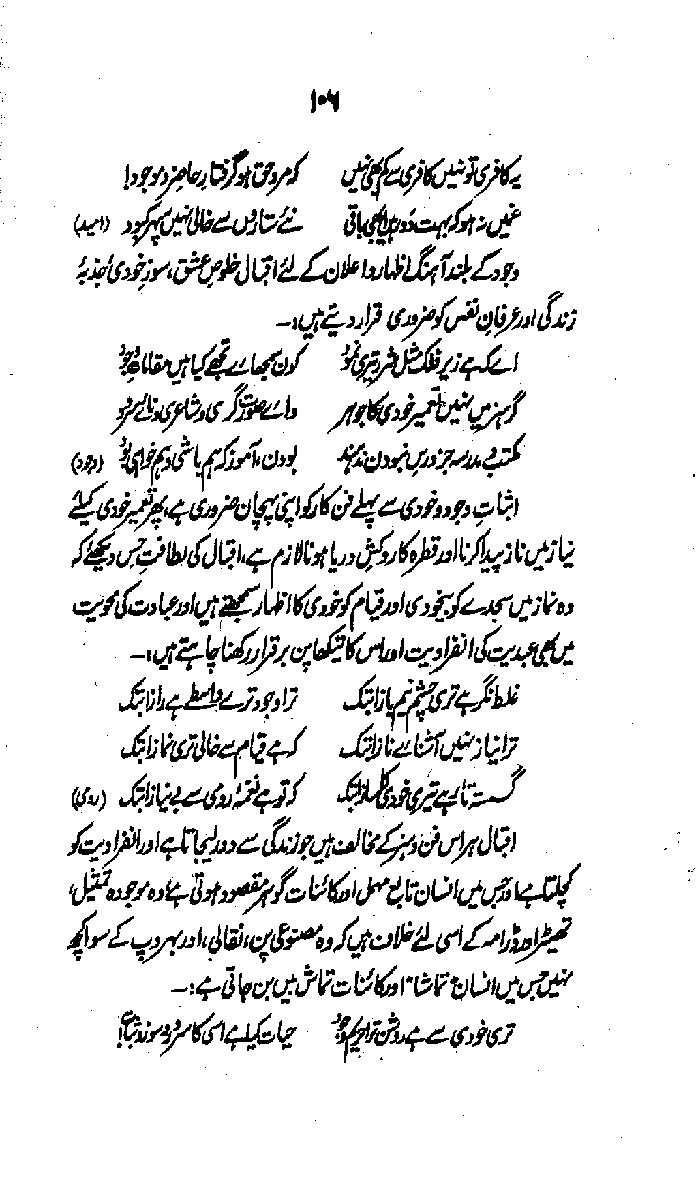 ۱۰۶
یہ کافری تو نہیں کافری سے کم بھی نہیں کہ مردِ حق ہو گرفتارِ حاضر و موجود!
غمیں نہ ہو کہ بہت دور ہیں ابھی باقی نئے ستاروں سے خالی نہیں سپہرِ کبود (امید)
وجود کے بلند آہنگ اظہار و اعلان کے لئے اقبال خلوصِ عشق، سوزِ خودی، جذبۂ
زندگی اور عرفانِ نفس کو ضروری قرار دیتے ہیں:۔
اے کہ ہے زیرِ فلک مثلِ شرر تیری نمود کون سمجھائے تجھے کیا ہیں مقاماتِ وجود
گر ہنر میں نہیں تعمیرِ خودی کا جوہر وائے صورت گری و شاعری و نائے و سرود
مکتب و مدرسہ جز درسِ نبودن ندہند بودن آموز کہ ہم باشی و ہم خواہی بود (وجود)
اثباتِ وجود و خودی سے پہلے فن کار کو اپنی پہچان ضروری ہے، پھر تعمیرِ خودی کیلئے
نیاز میں ناز پیدا کرنا اور قطرہ کا روکشِ دریا ہونا لازم ہے، اقبال کی لطافتِ حِس دیکھئے کہ
وہ نماز میں سجدے کو بیخودی اور قیام کو خودی کا اظہار سمجھتے ہیں اور عبادت کی محویت
میں بھی عبدیت کی انفرادیت اور اس کا تیکھا پن برقرار رکھنا چاہتے ہیں:۔
غلط نگر ہے تری چشمِ نیم باز ابتک ترا وجود ترے واسطے ہے راز ابتک
ترا نیاز نہیں آشنائے ناز ابتک کہ ہے قیام سے خالی تری نماز ابتک
گسستہ تار ہے تیری خودی کا ساز ابتک کہ تو ہے نغمۂ رومی سے بے نیاز ابتک (رومی)
اقبال ہر اس فن و ہنر کے مخالف ہیں جو زندگی سے دور لیجاتا ہے اور انفرادیت کو
کچلتا ہے اور جس میں انسان تابع مہمل اور کائنات گوہرِ مقصود ہوتی ہے، وہ موجودہ تمثیل،
تھیٹر اور ڈرامہ کے اسی لئے خلاف ہیں کہ وہ مصنوعی پن، نقالی، اور بہروپ کے سوا کچھ
نہیں جس میں انسان تماشا اور کائنات تماش بیں بن جاتی ہے:۔
تری خودی سے ہے روشن ترا حریمِ وجود حیات کیا ہے اسی کا سرور و سوز و ثبات!